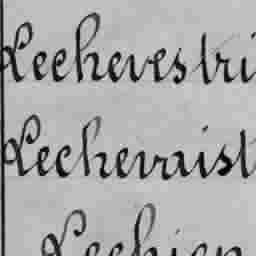 Lechevestri
Lechevraist
Lechien